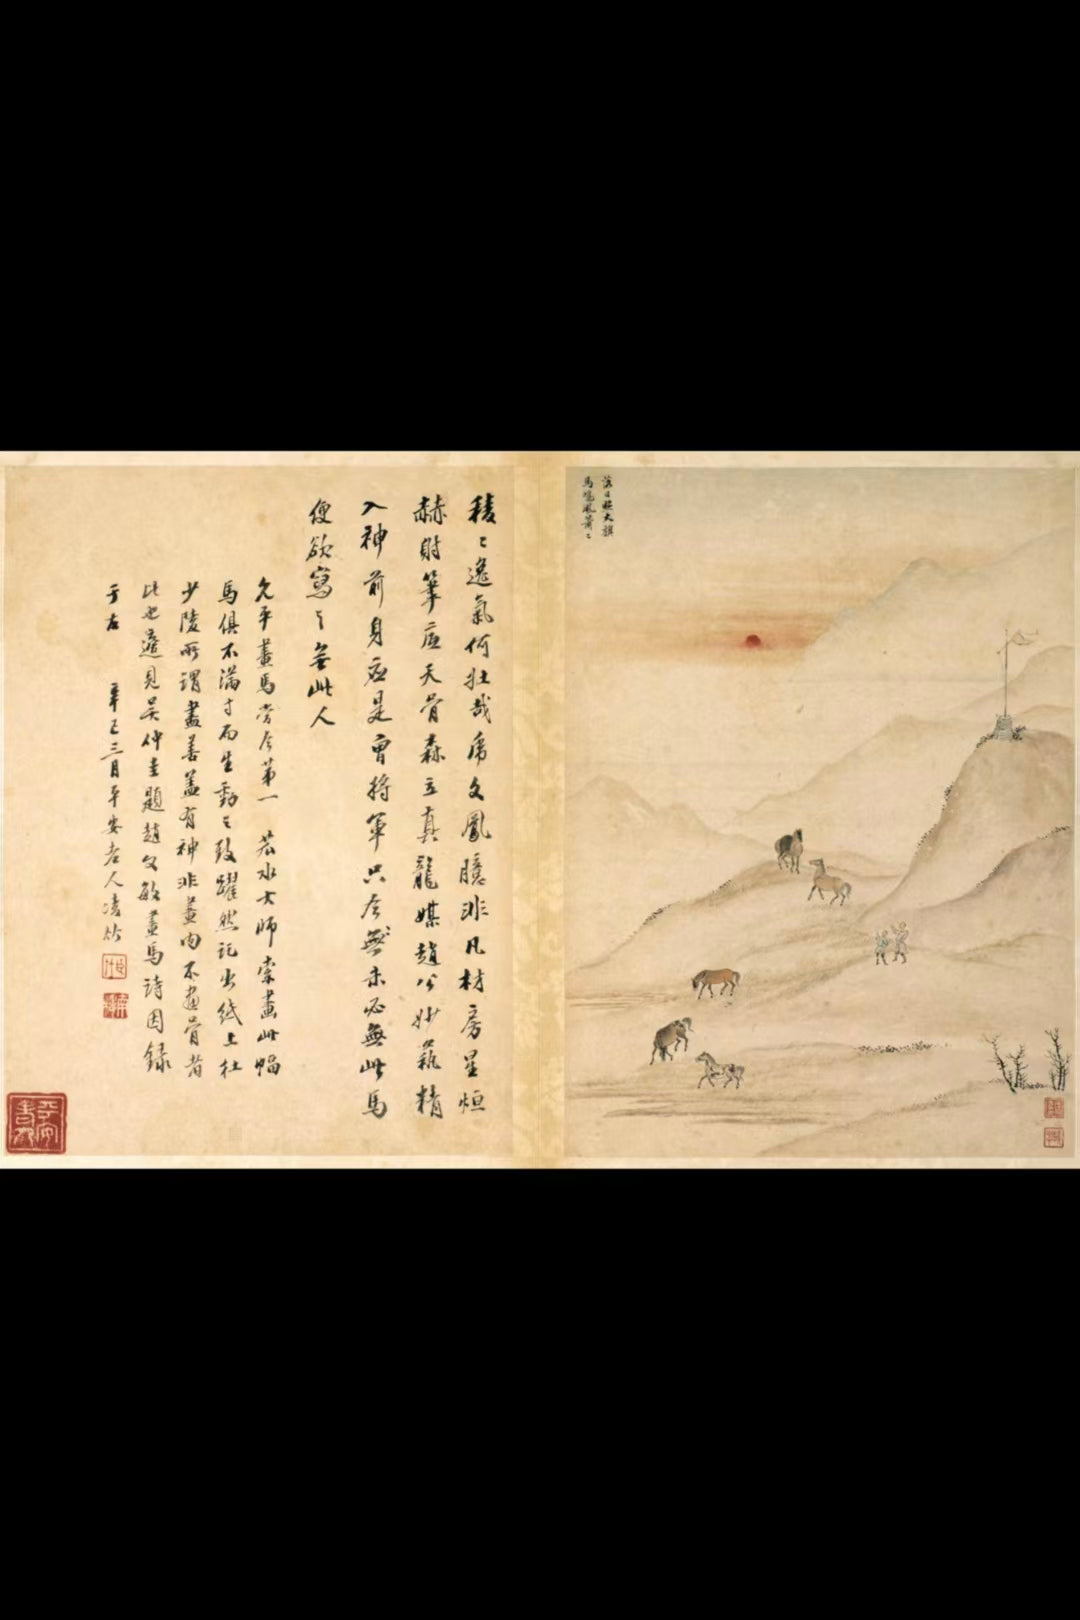 落日照大旗
馬鳴風蕭〻
稜〻逸氣何壯哉虎文鳳臆非凡材房星烜
赫射筆底天骨森立真龍媒趙公妙藝精
入神前身應是曹將軍只今無未必無此馬
便欲寫之無此人
允平畫馬當今第一 若水大師索畫此幅
馬俱不滿寸而生動之致躍然託出紙上杜
少陵所謂畫善蓋有神非畫肉不畫骨者
比也適見吳仲圭題趙文敏畫馬詩因錄
于左 辛巳三月平安老人凌竹